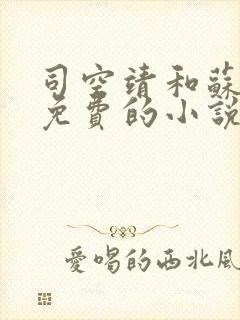 司空靖和蘇
免費的小說
愛唱的西北風